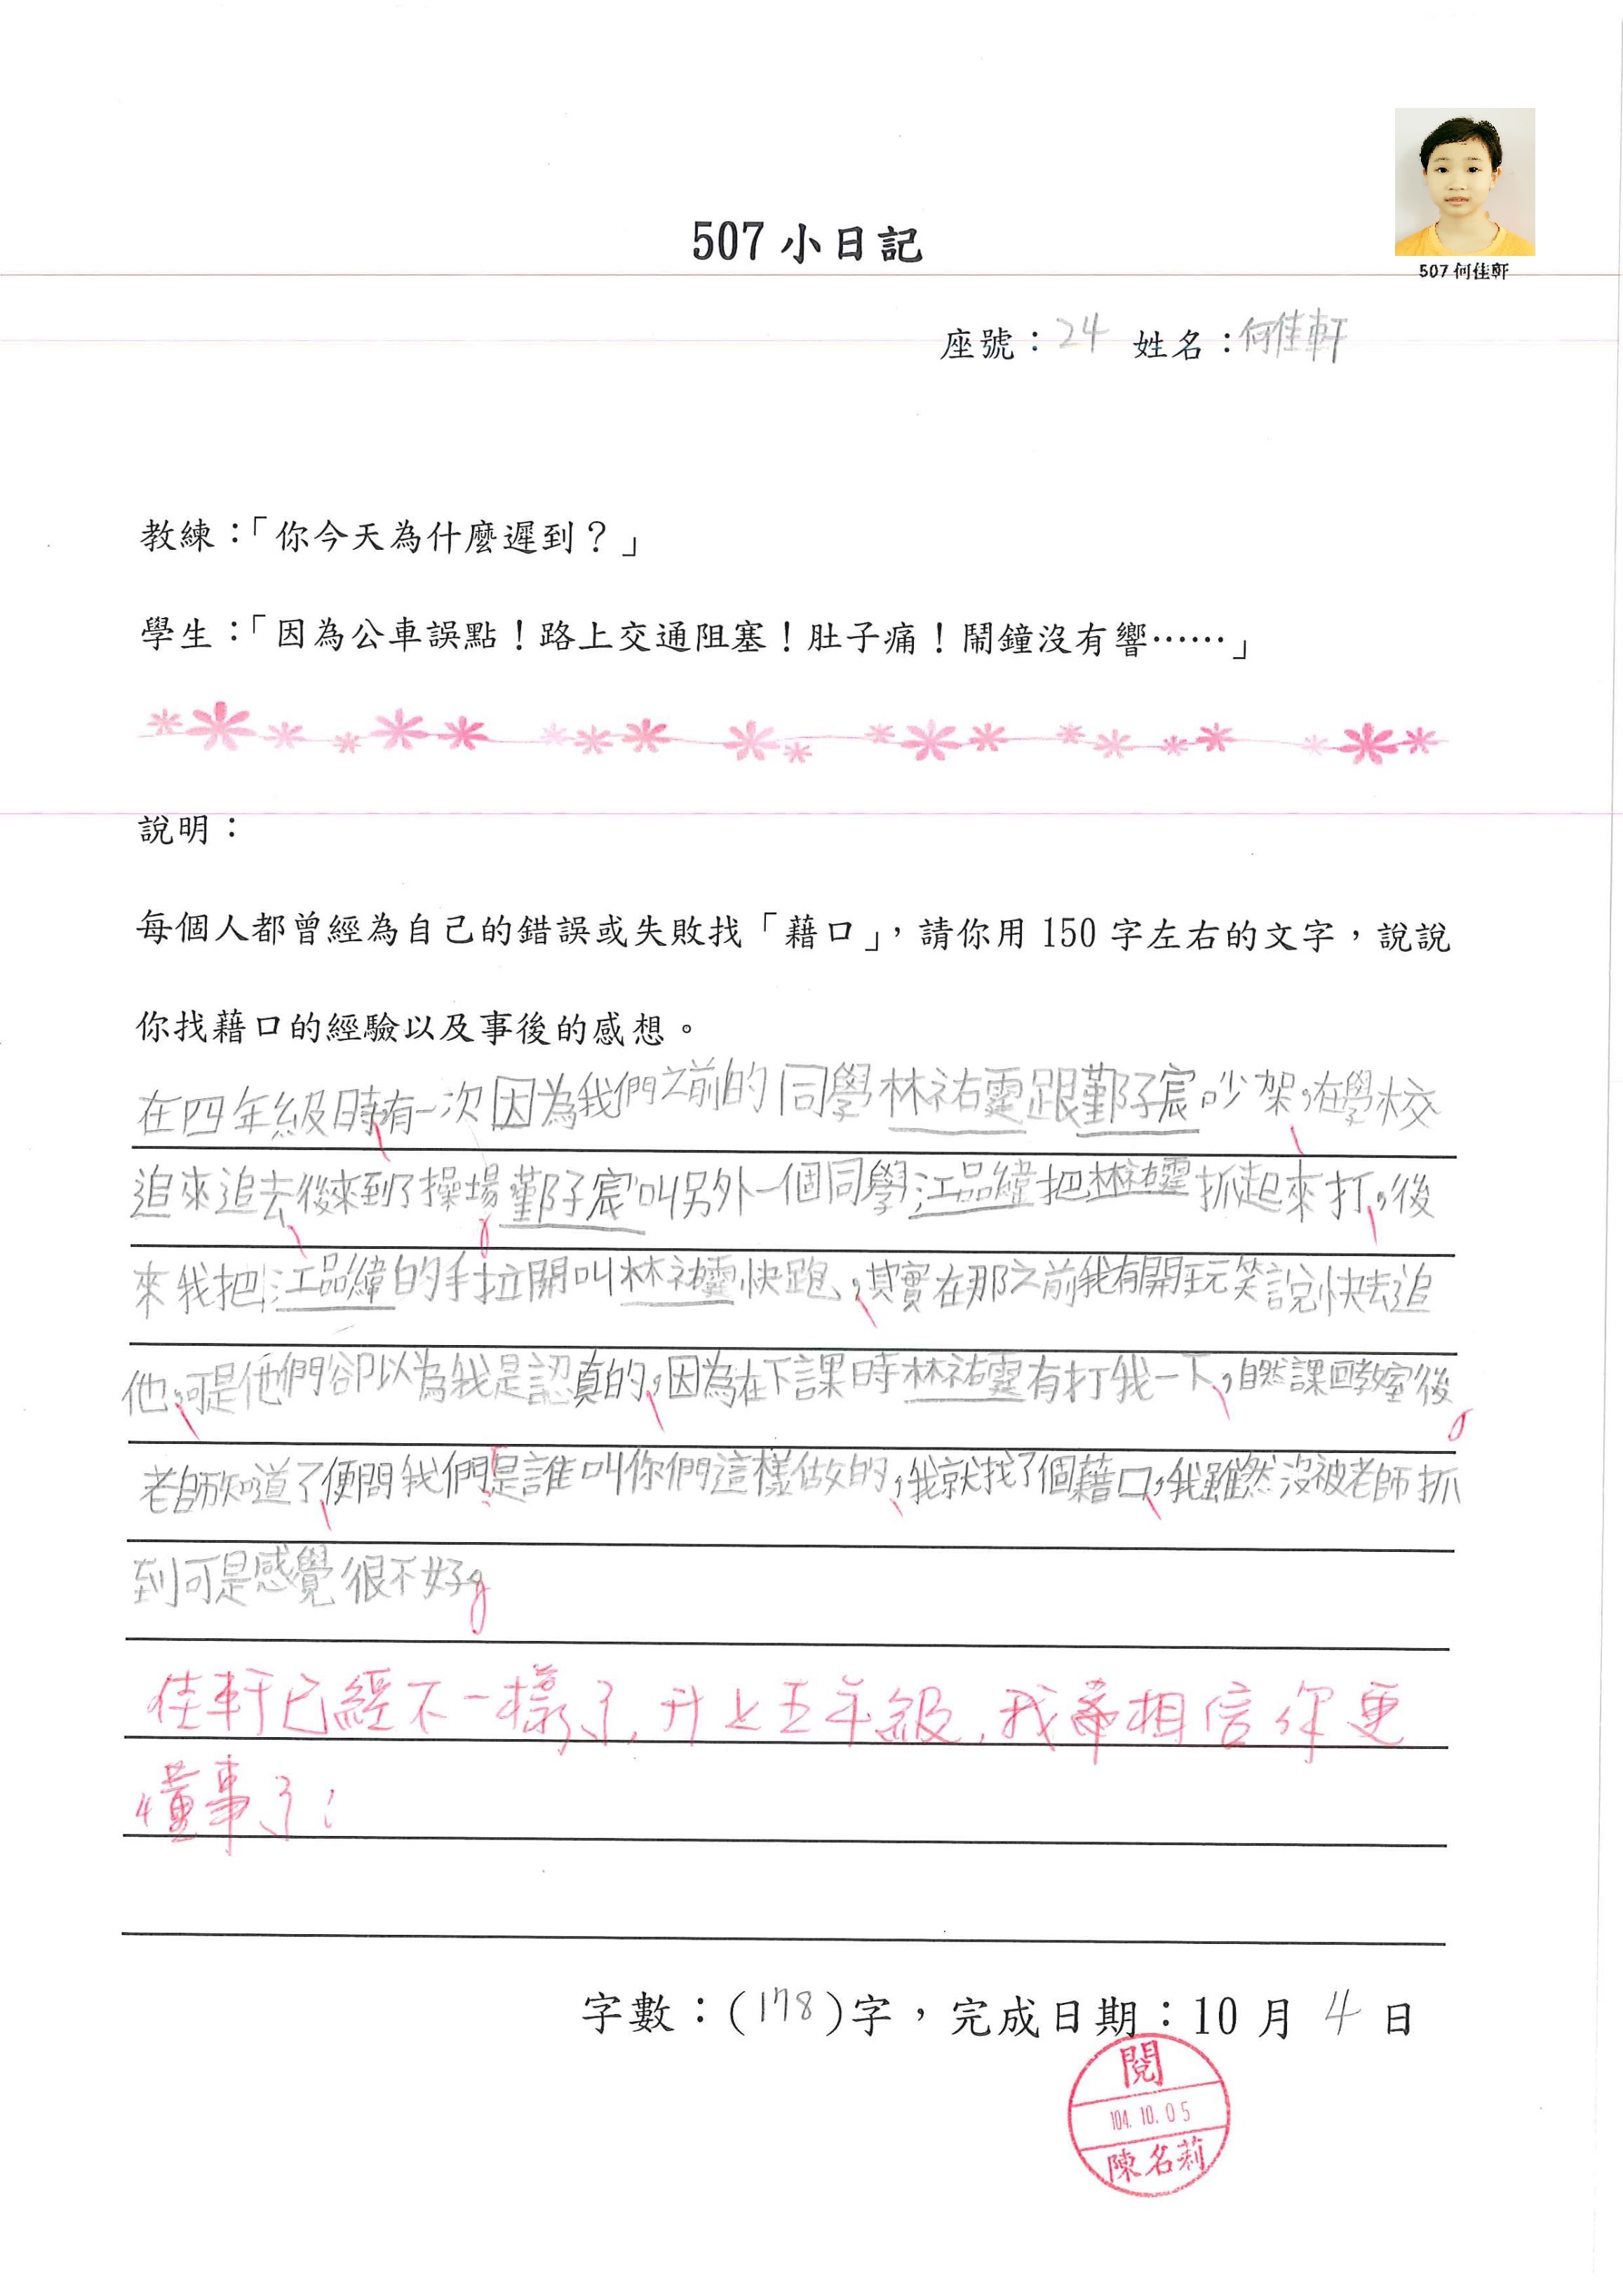 507 小日記
507 何佳軒
座號：24 姓名：何佳軒
教練：「你今天為什麼遲到？」
學生：「因為公車誤點！路上交通阻塞！肚子痛！鬧鐘沒有響……」
說明：
每個人都曾經為自己的錯誤或失敗找「藉口」，請你用 150 字左右的文字，說說
你找藉口的經驗以及事後的感想。
在四年級時，有一次因為我們之前的同學林祐霆跟鄞子宸吵架，在學校
追來追去，後來到了操場。鄞子宸叫另外一個同學江品緯把林祐霆抓起來打，後
來我把江品緯的手拉開叫林祐霆快跑，其實在那之前我有開玩笑說快去追
他，可是他們卻以為我是認真的，因為在下課時林祐霆有打我一下，自然課回教室後。
老師知道了，便問我們：是誰叫你們這樣做的，我就找了個藉口，我雖然沒被老師抓
到可是感覺很不好。
佳軒已經不一樣了，升上五年級，我相信你更
懂事了！
字數：(178)字，完成日期：10 月 4 日
閱
104.10.05
陳名莉